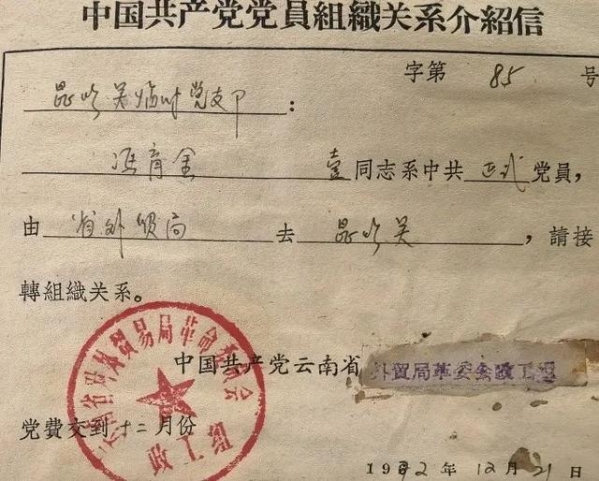 中国共产党党员組織关系介紹信
字第 85 号
昆明关临时党支部：
冯育全 壹同志系中共 正式 党员，
由 省外贸局 去 昆明关 ，請接
轉組織关系。
中国共产党云南省 外貿局革委会政工组
云南省对外貿易局革命委員会
政工組
党费交到十二月份
1972年12月21日